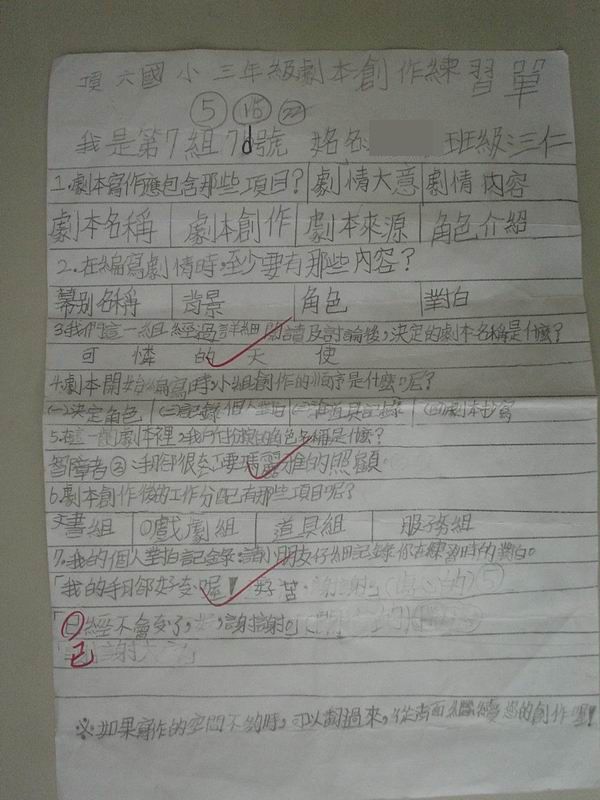 頂六國小三年級劇本創作練習單
5 22
我是第7組 號 姓名 班級:三仁
1.劇本寫作應包含那些項目? 劇情大意 劇情內容
劇本名稱 劇本創作 劇本來源 角色介紹
2.在編寫劇情時,至少要有那些內容?
幕別名稱 背景 角色 對白
3.我們這一組經過詳細閱讀及討論後,決定的劇本名稱是什麼?
可憐的天使
4.劇本開始編寫時,小組創作的順序是什麼呢?
(一)決定角色 (二)記錄個人對白 (三) 道具記錄 (四)劇本抄寫
5.在這一齣劇本裡,我所扮演的角色名稱是什麼?
智障者 :手腳很 要瑪麗雅的照顧
6.劇本創作後的工作分配有那些項目呢?
文書組 戲劇組 道具組 服務組
7.我的個人對白記錄:請小朋友仔細記錄你在練習時的對白。
「我的手腳好 喔 好苦 謝謝
「 經不會 了, 謝謝
已 謝
※如果寫作的空間不夠時,可以翻過來,從背面繼續您的創作喔!